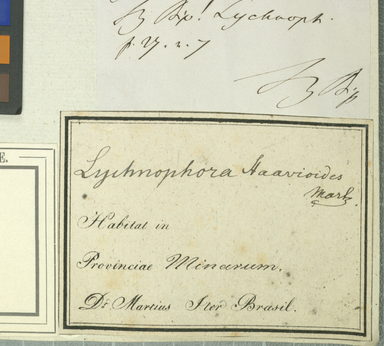 Sz Bip! Lychnoph.
p. 27. n. 7
Sz Bip
E.
Lychnophora staavioides
Mart.
Habitat in
Provinciae Minarum.
Dr. Martius Iter Brasil.